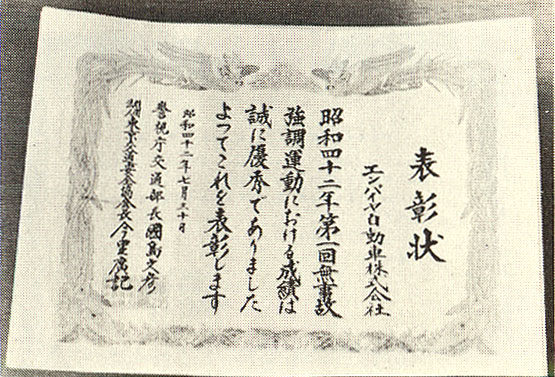 表彰状
エンパイヤ自動車株式会社
昭和四十二年第一回無事故
強調運動における成績は
誠に優秀でありました
よつてこれを表彰します
昭和四十二年七月三十日
警視庁交通部長國島文彦
東京交通安全協会長今里廣記